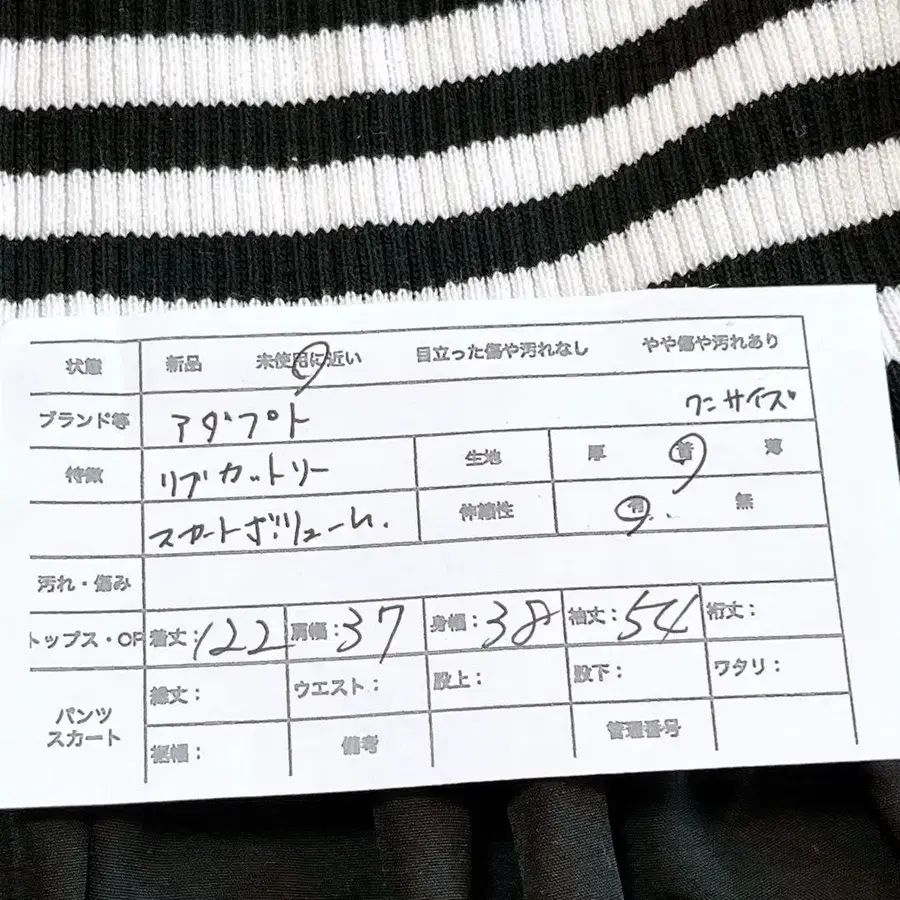 状態 新品 未使用に近い 目立った傷や汚れなし やや傷や汚れあり
ブランド等 アダプト ワンサイズ
特徴 リブカットソー 生地 厚 普 薄
スカートボリューム. 伸縮性 有 無
汚れ・傷み
トップス・OP 着丈：122 肩幅：37 身幅：38 袖丈：54 裄丈：
パンツ スカート 総丈： ウエスト： 股上： 股下： ワタリ：
裾幅： 備考 管理番号